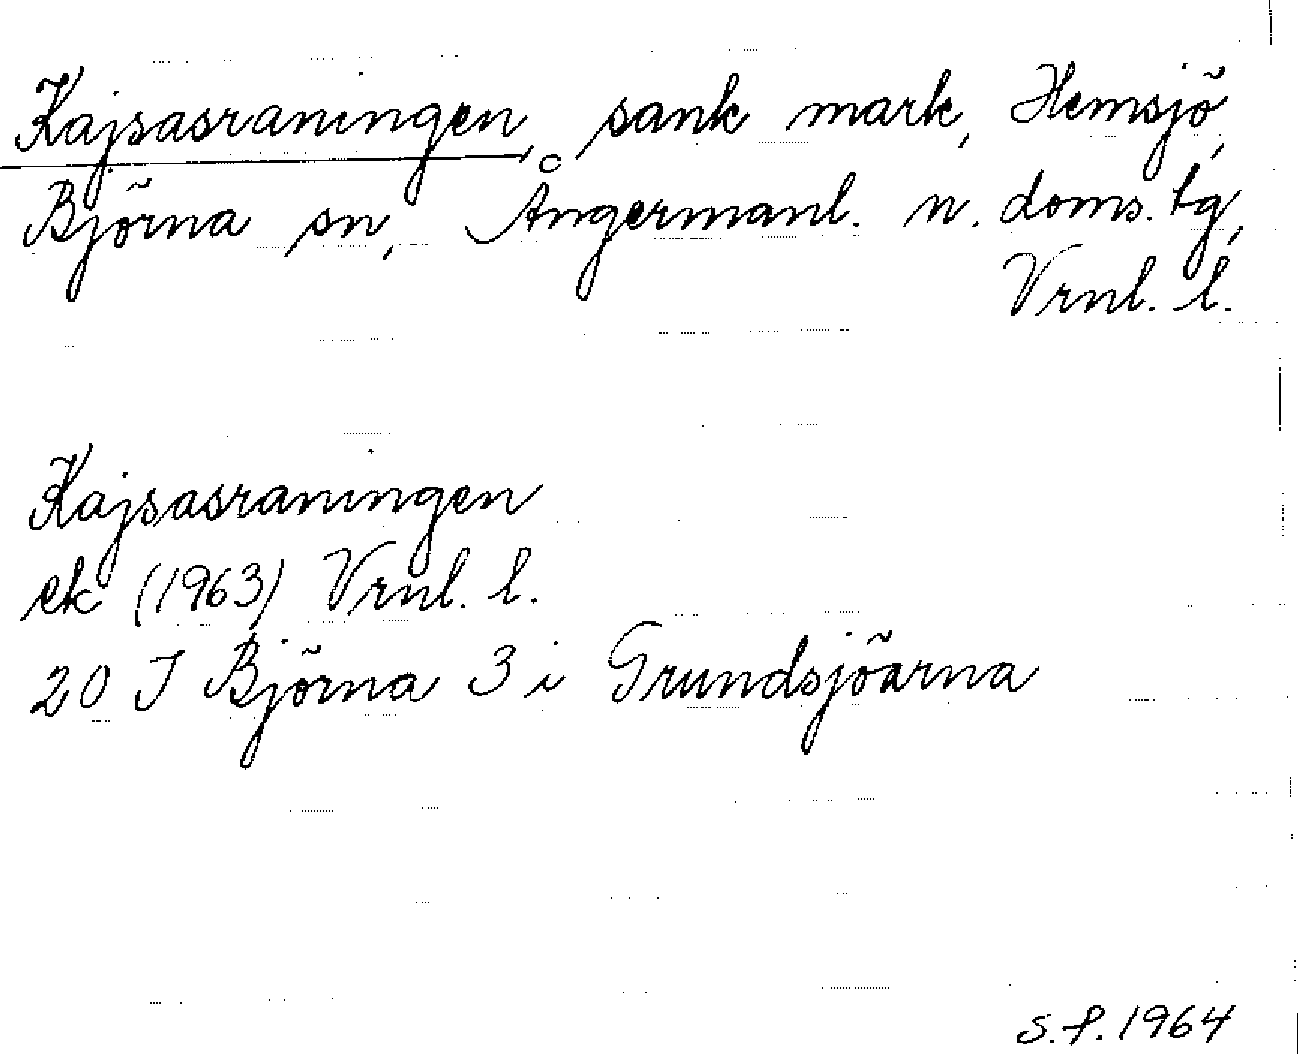 Kajsasraningen, sank mark, Hemsjö,
Björna sn, Ångermanl. n. doms. tg,
Vrnl. l.
Kajsasraningen
ek (1963) Vrnl. l.
20 I Björna 3 i Grundsjöarna
S.P. 1964